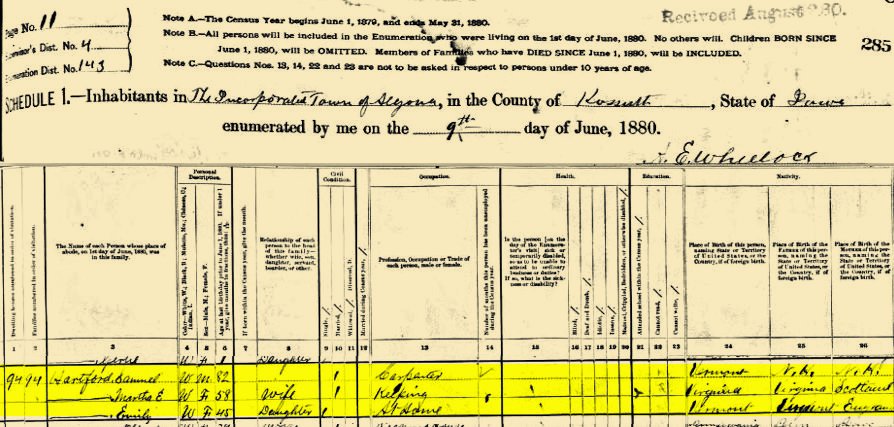 Page No. 11
Supervisor's Dist. No. 4
Enumeration Dist. No. 143
Note A.—The Census Year begins June 1, 1879, and ends May 31, 1880.
Note B.—All persons will be included in the Enumeration who were living on the 1st day of June, 1880. No others will. Children BORN SINCE
June 1, 1880, will be OMITTED. Members of Families who have DIED SINCE June 1, 1880, will be INCLUDED.
Note C.—Questions Nos. 13, 14, 22 and 23 are not to be asked in respect to persons under 10 years of age.
Recived August 30.
285
SCHEDULE 1.—Inhabitants in The Incorporated Town of Algona, in the County of Kossuth, State of Iowa
enumerated by me on the 9th day of June, 1880.
E. Wheelock
Personal Description.
Civil Condition.
Occupation.
Health.
Education.
Nativity.
Dwelling houses numbered in order of visitation.
Families numbered in order of visitation.
The Name of each Person whose place of abode, on 1st day of June, 1880, was in this family.
If born within the Census year, give the month.
Relationship of each person to the head of this family—whether wife, son, daughter, servant, boarder, or other.
Single, /.
Married, /.
Widowed, /. Divorced, D.
Married during Census year, /.
Profession, Occupation or Trade of each person, male or female.
Number of months this person has been unemployed during the Census year.
Is the person [on the day of the Enumerator's visit] sick or temporarily disabled, so as to be unable to attend to ordinary business or duties? If so, what is the sickness or disability?
Blind, /.
Deaf and Dumb, /.
Idiotic, /.
Insane, /.
Maimed, Crippled, Bedridden, or otherwise disabled, /.
Attended school within the Census year, /.
Cannot read, /.
Cannot write, /.
Place of Birth of this person, naming State or Territory of United States, or the Country, if of foreign birth.
Place of Birth of the Father of this person, naming the State or Territory of United States, or the Country, if of foreign birth.
Place of Birth of the Mother of this person, naming the State or Territory of United States, or the Country, if of foreign birth.
1 2 3 4 5 6 7 8 9 10 11 12 13 14 15 16 17 18 19 20 21 22 23 24 25 26
W F 1 Daughter
94 94 Hartford, Samuel W M 82 / Carpenter Vermont N.H. N.H.
— Martha E W F 58 Wife / Keeping Virginia Virginia Scotland
— Emily W F 45 Daughter / At Home Vermont Vermont